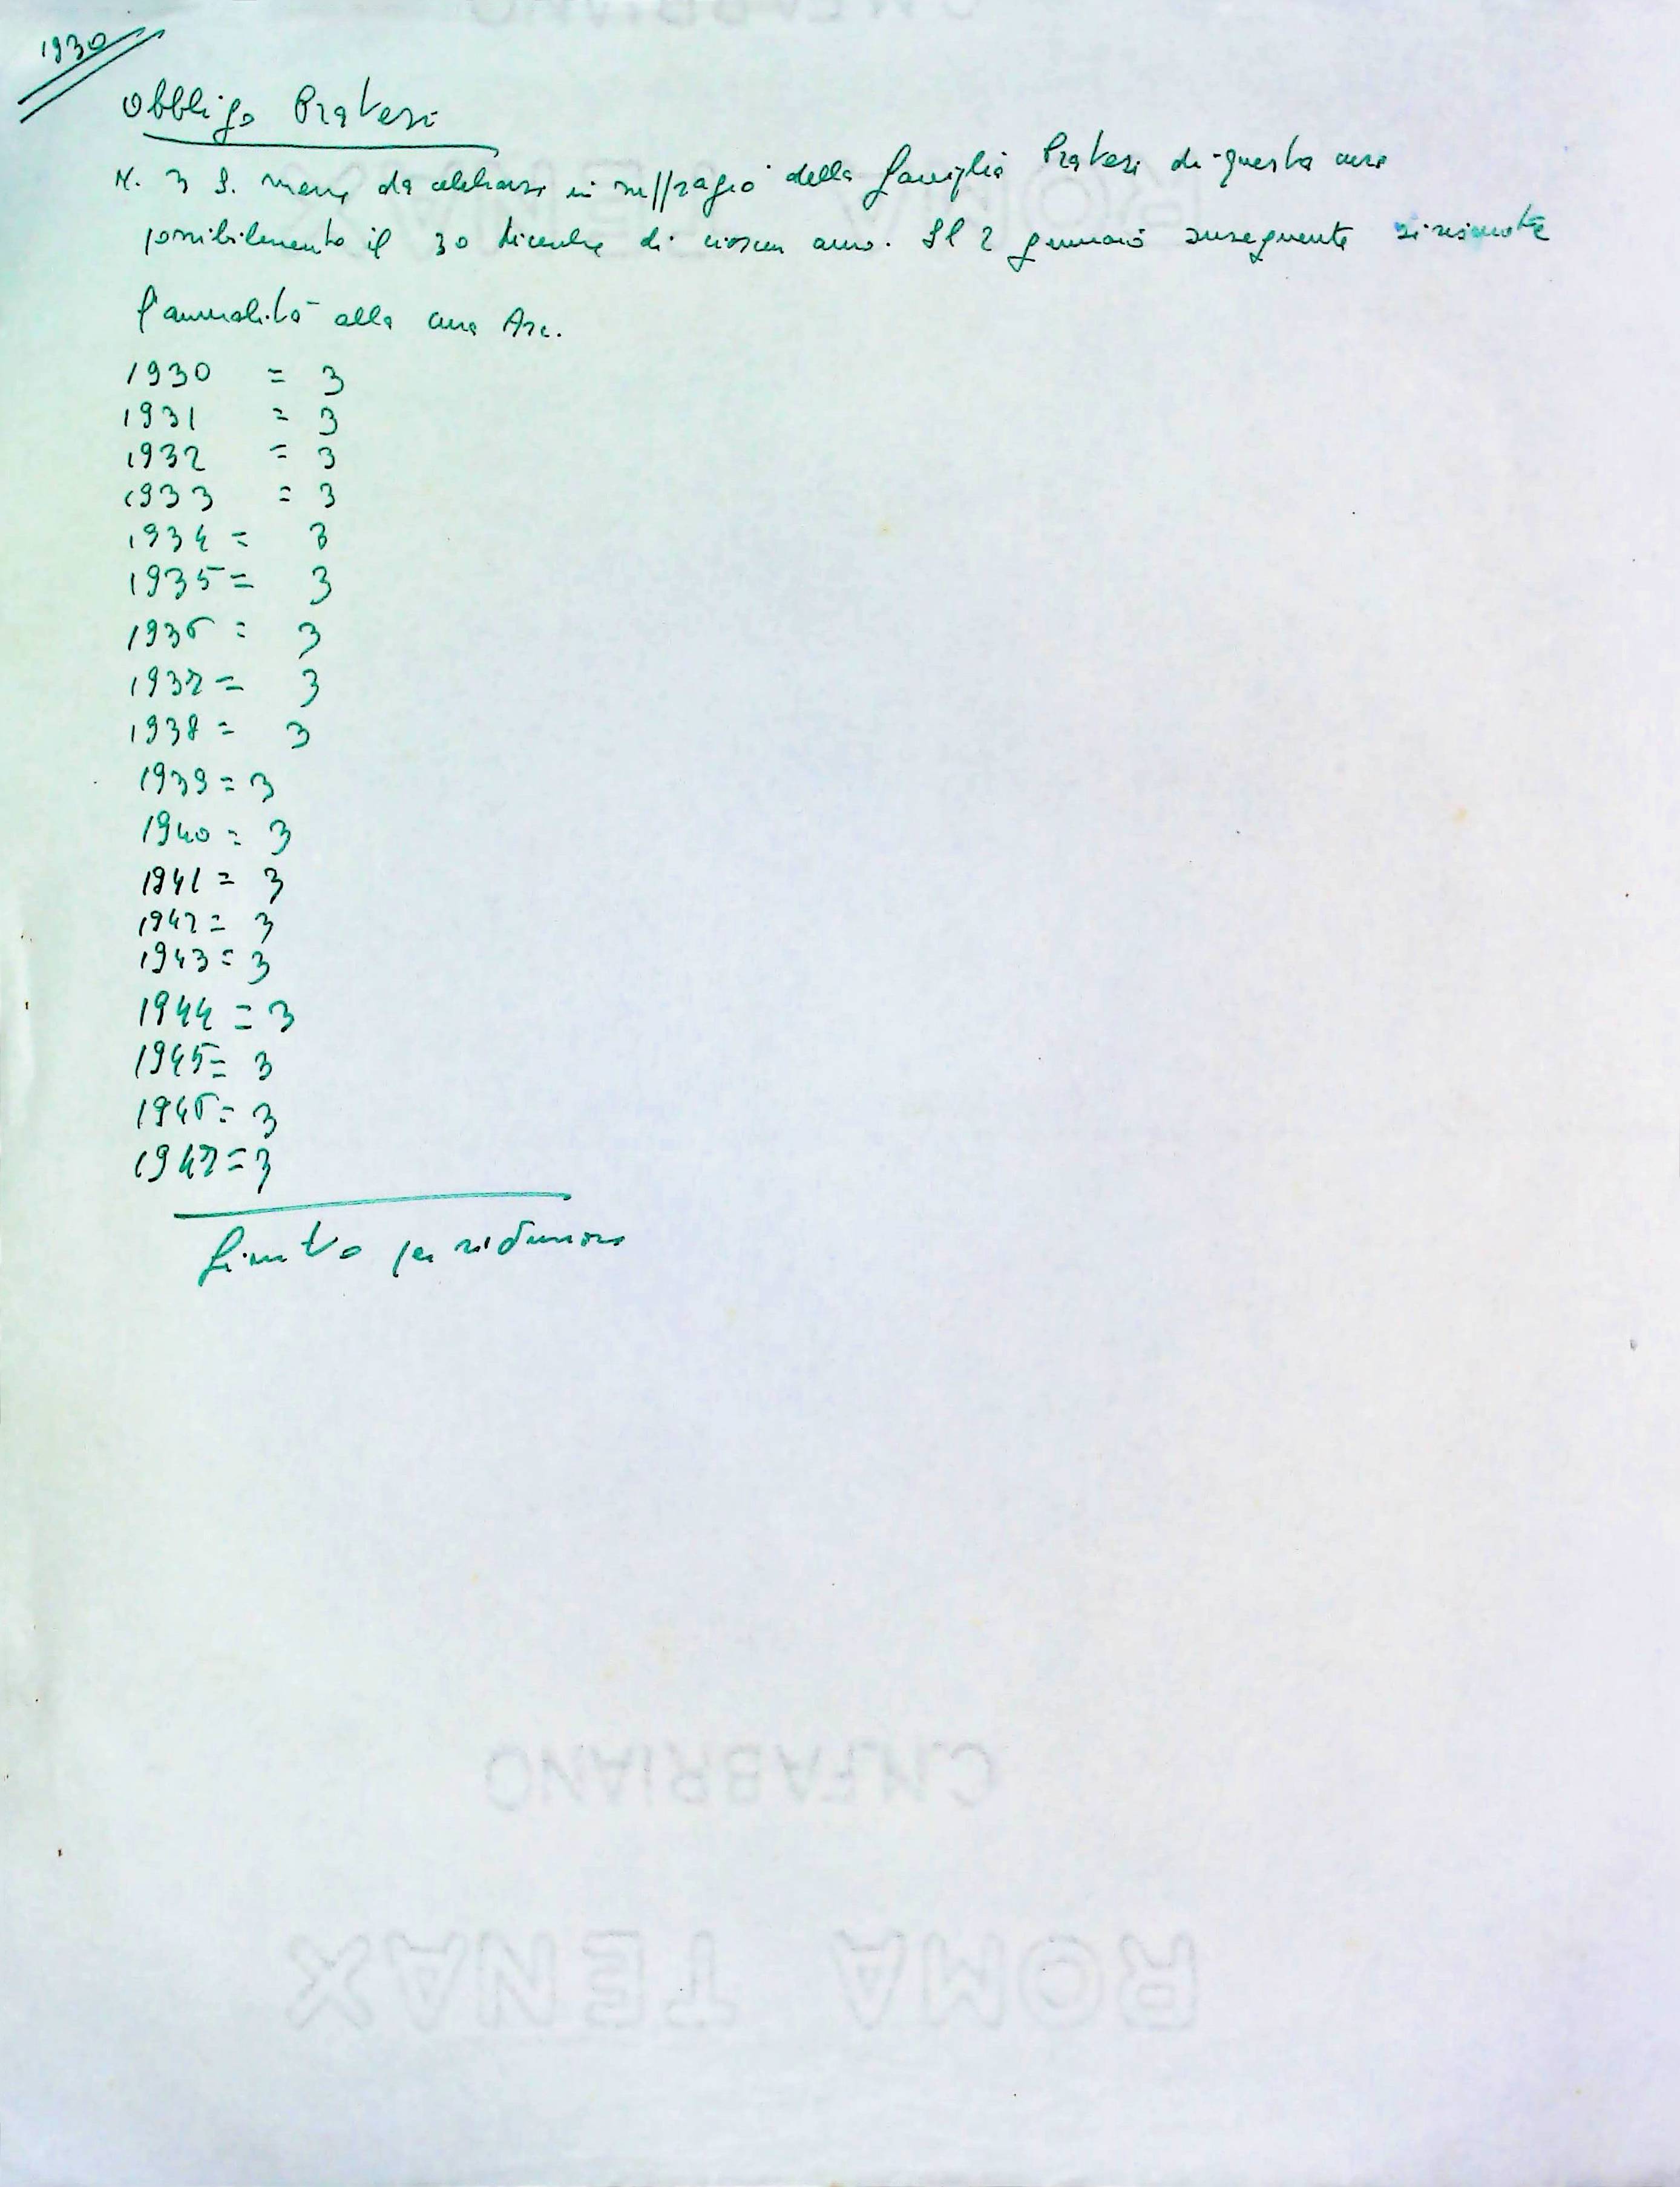 1930
Obbligo Pratesi
N. 3 S. messe da celebrarsi in suffragio della famiglia Pratesi di questa cura
possibilmente il 30 dicembre di ciascun anno. Il 2 gennaio susseguente si riscuote
l'annualità alla cura Arc.
1930 = 3
1931 = 3
1932 = 3
1933 = 3
1934 = 3
1935 = 3
1936 = 3
1937 = 3
1938 = 3
1939 = 3
1940 = 3
1941 = 3
1942 = 3
1943 = 3
1944 = 3
1945 = 3
1946 = 3
1947 = 3
finito per riduzione
C.M.FABRIANO
ROMA TENAX